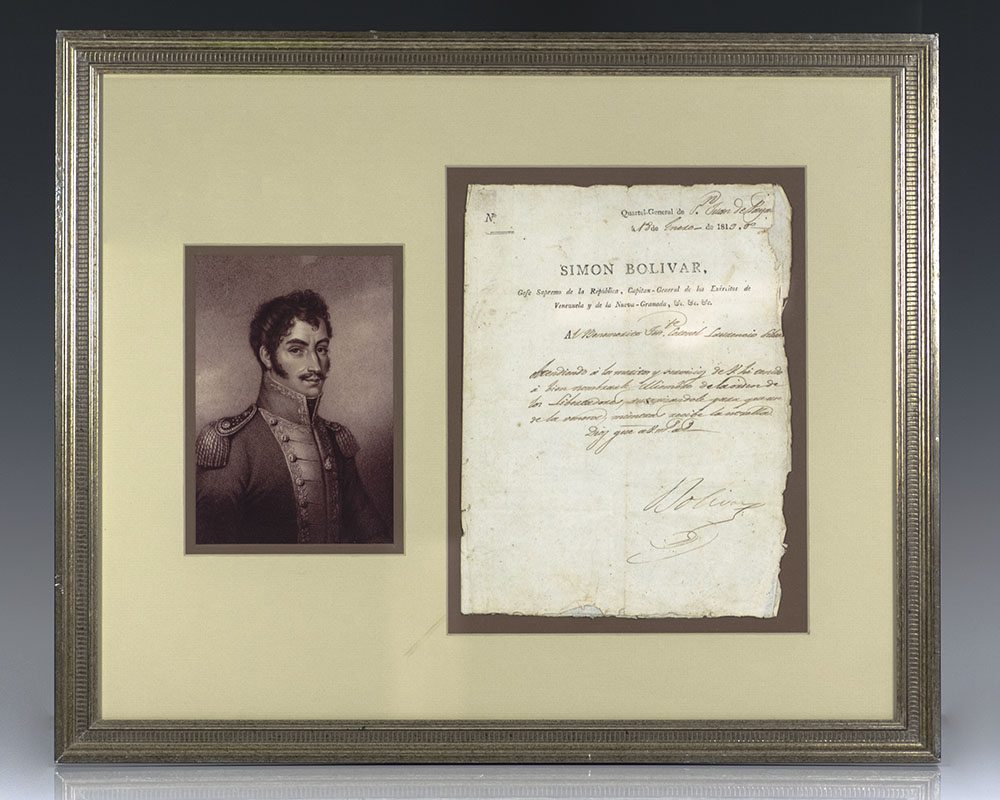 Nº
Quartel-General de Sⁿ Juan de Payar
á 18 de Enero de 1818. 8º
SIMON BOLIVAR,
Gefe Supremo de la República, Capitan-General de los Exércitos de
Venezuela y de la Nueva-Granada, &c. &c. &c.
Al Benemerito Coronel Laurencio Silva
Atendiendo á los meritos y servicios de V. he
á bien nombrarle Miembro de la orden de
los Libertadores
de la recibe la
Dios gue á V. mº aº
Bolivar